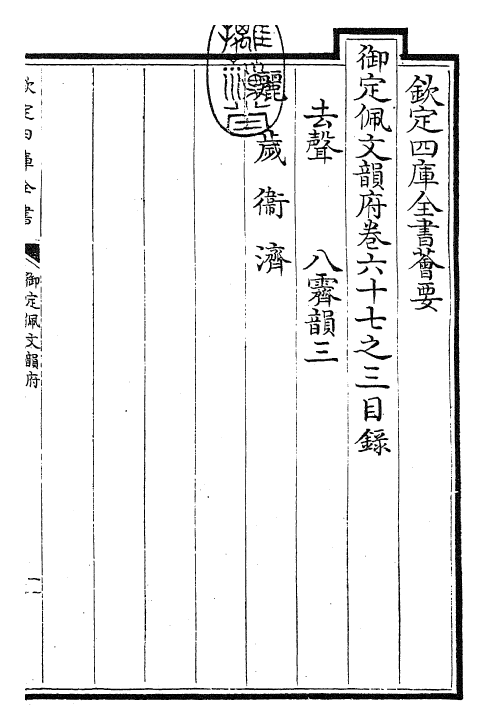 欽定四庫全書薈要
御定佩文韻府卷六十七之三目錄
去聲 八霽韻三
麗 歲 衞 濟
欽定四庫全書
御定佩文韻府
一